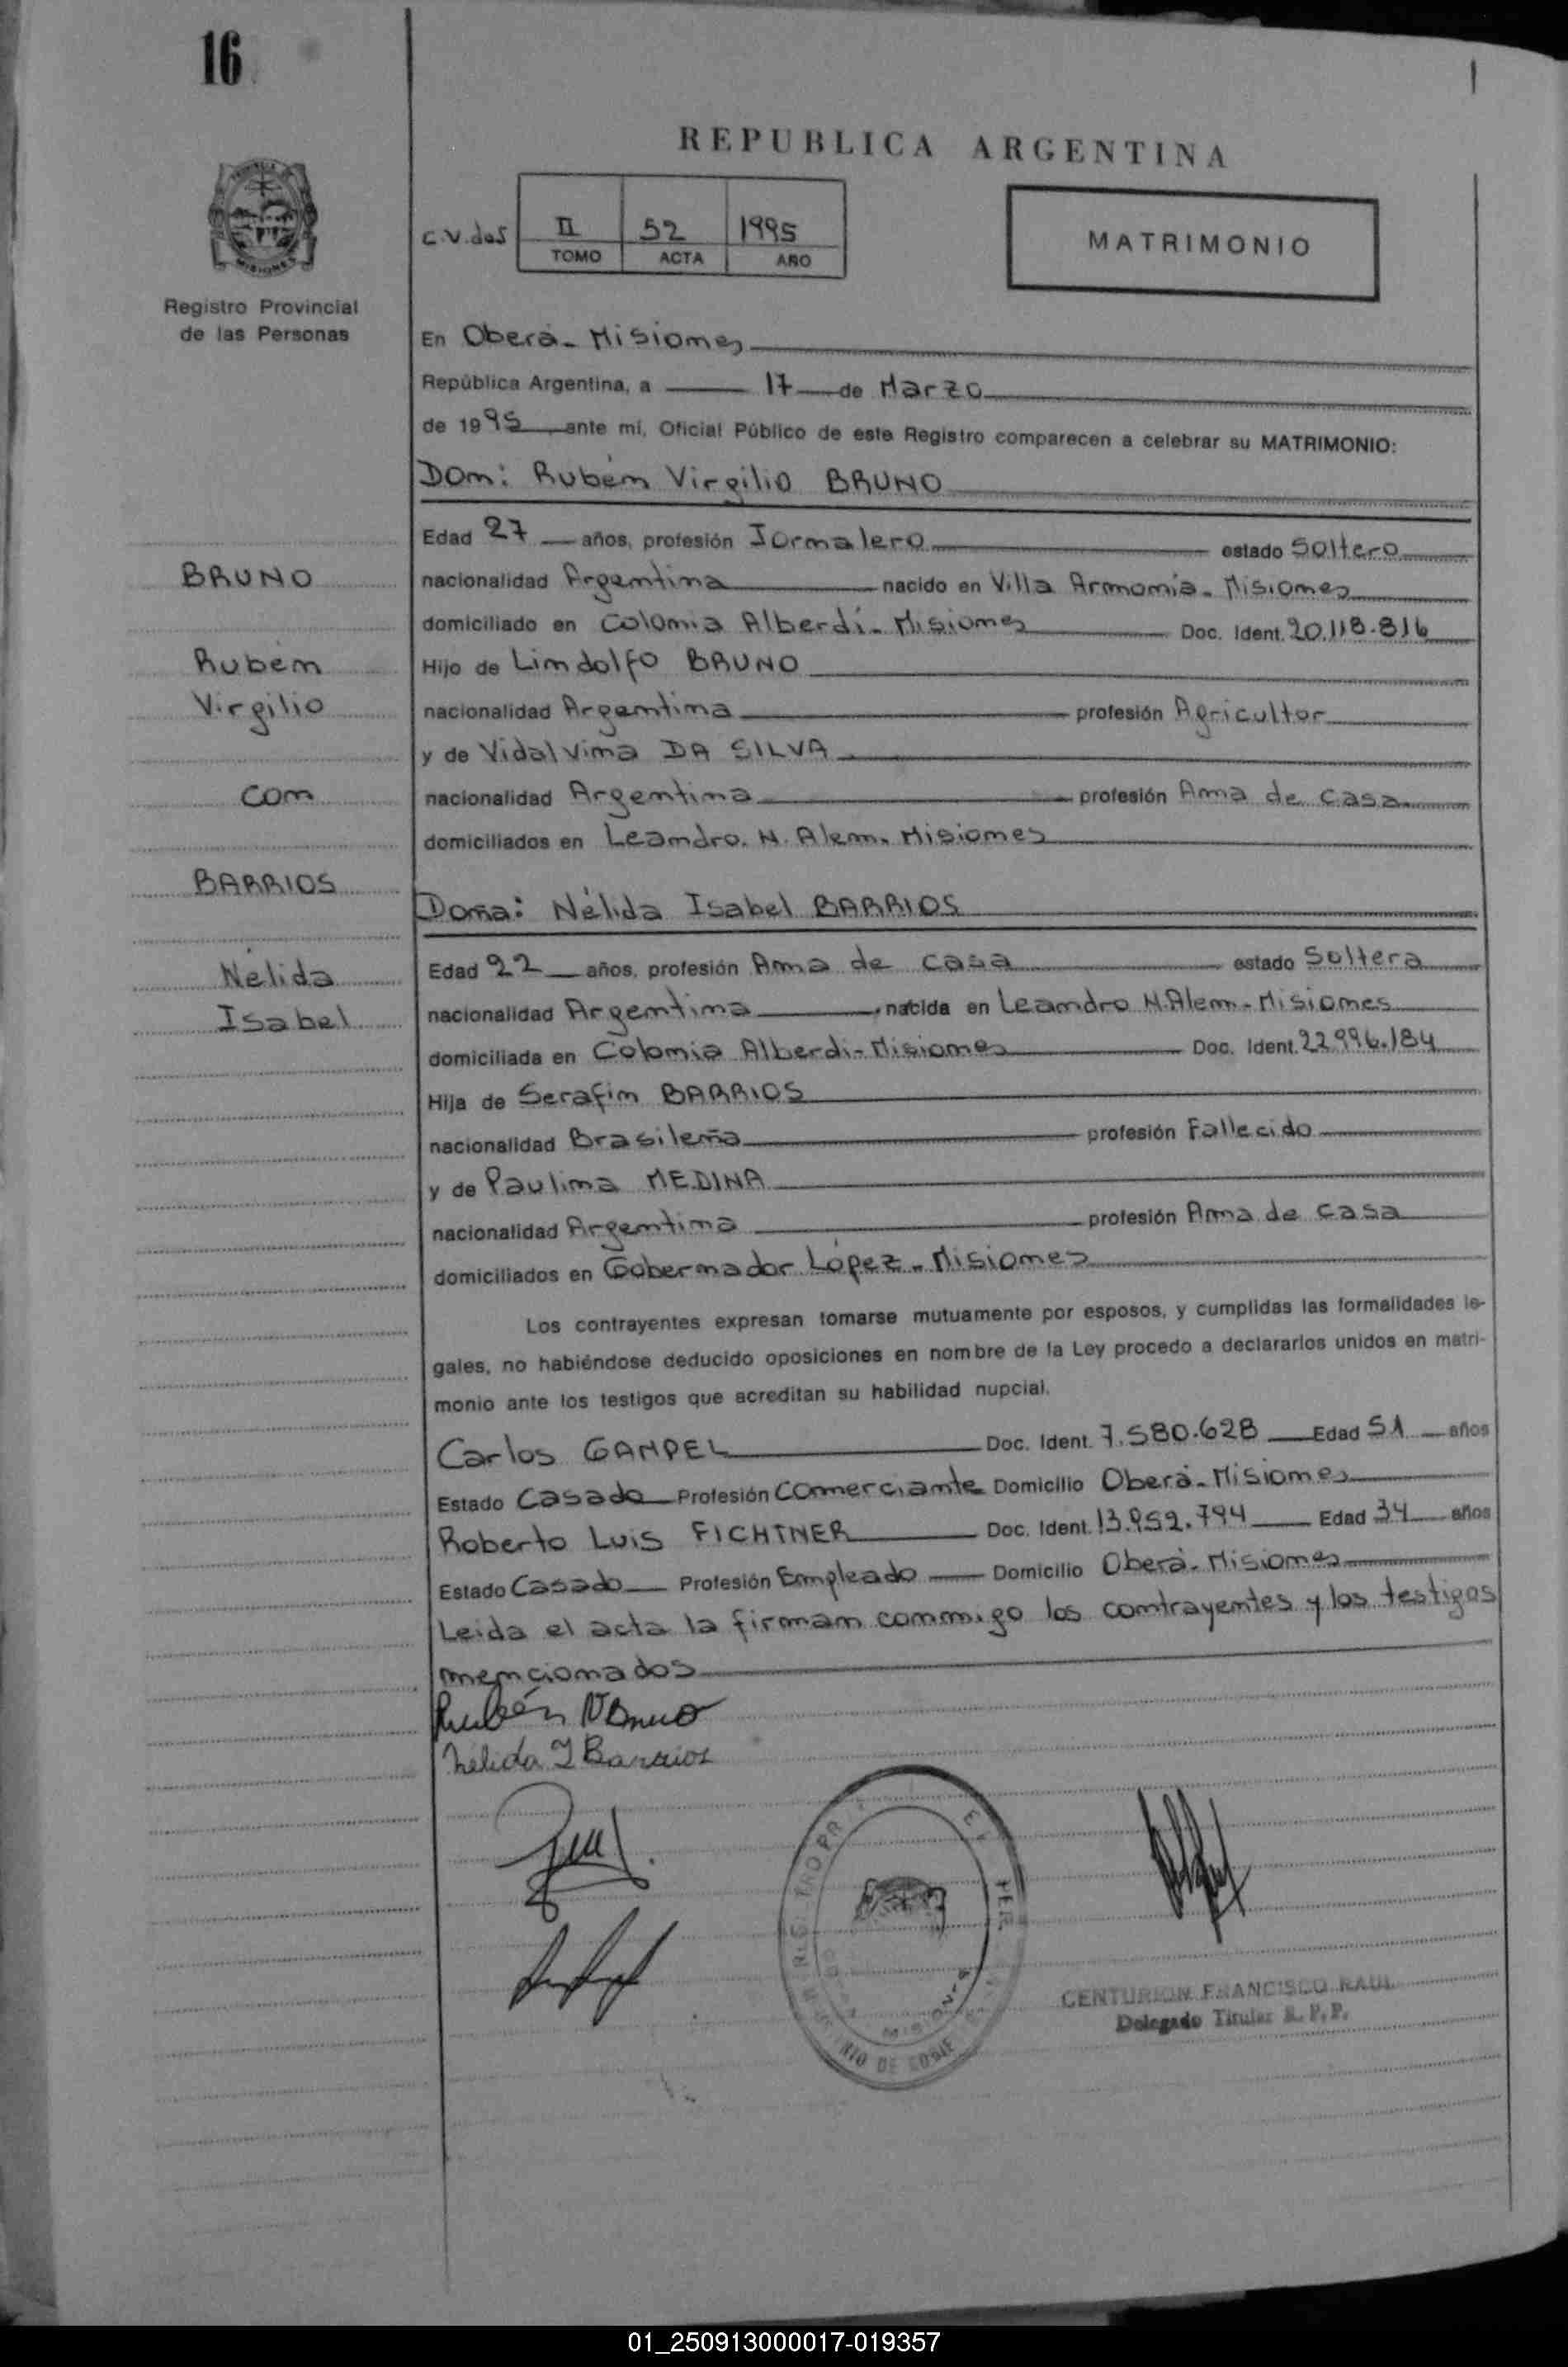 16
REPUBLICA ARGENTINA
c.v.dos II 52 1995
TOMO ACTA AÑO
MATRIMONIO
Registro Provincial
de las Personas
En Oberá - Misiones
República Argentina, a 17 de Marzo
de 1995 ante mí, Oficial Público de este Registro comparecen a celebrar su MATRIMONIO:
Don: Rubén Virgilio BRUNO
Edad 27 años, profesión Jornalero estado Soltero
BRUNO
nacionalidad Argentina nacido en Villa Armonía - Misiones
domiciliado en Colonia Alberdí - Misiones Doc. Ident. 20.118.816
Rubén
Hijo de Lindolfo BRUNO
Virgilio
nacionalidad Argentina profesión Agricultor
y de Vidalvina DA SILVA
con
nacionalidad Argentina profesión Ama de casa
domiciliados en Leandro. N. Alem - Misiones
BARRIOS
Doña: Nélida Isabel BARRIOS
Nélida
Edad 22 años, profesión Ama de casa estado Soltera
Isabel
nacionalidad Argentina nacida en Leandro N. Alem - Misiones
domiciliada en Colonia Alberdi - Misiones Doc. Ident. 22.996.184
Hija de Serafin BARRIOS
nacionalidad Brasileña profesión Fallecido
y de Paulina MEDINA
nacionalidad Argentina profesión Ama de casa
domiciliados en Gobernador López - Misiones
Los contrayentes expresan tomarse mutuamente por esposos, y cumplidas las formalidades le-
gales, no habiéndose deducido oposiciones en nombre de la Ley procedo a declararlos unidos en matri-
monio ante los testigos que acreditan su habilidad nupcial.
Carlos GAMPEL Doc. Ident. 7.580.628 Edad 51 años
Estado Casado Profesión Comerciante Domicilio Oberá - Misiones
Roberto Luis FICHTNER Doc. Ident. 13.952.794 Edad 34 años
Estado Casado Profesión Empleado Domicilio Oberá - Misiones
Leida el acta la firman conmigo los contrayentes y los testigos
mencionados
Rubén V Bruno
Nélida I Barrios
CENTURION FRANCISCO RAUL
Delegado Titular R. P. P.
01_250913000017-019357